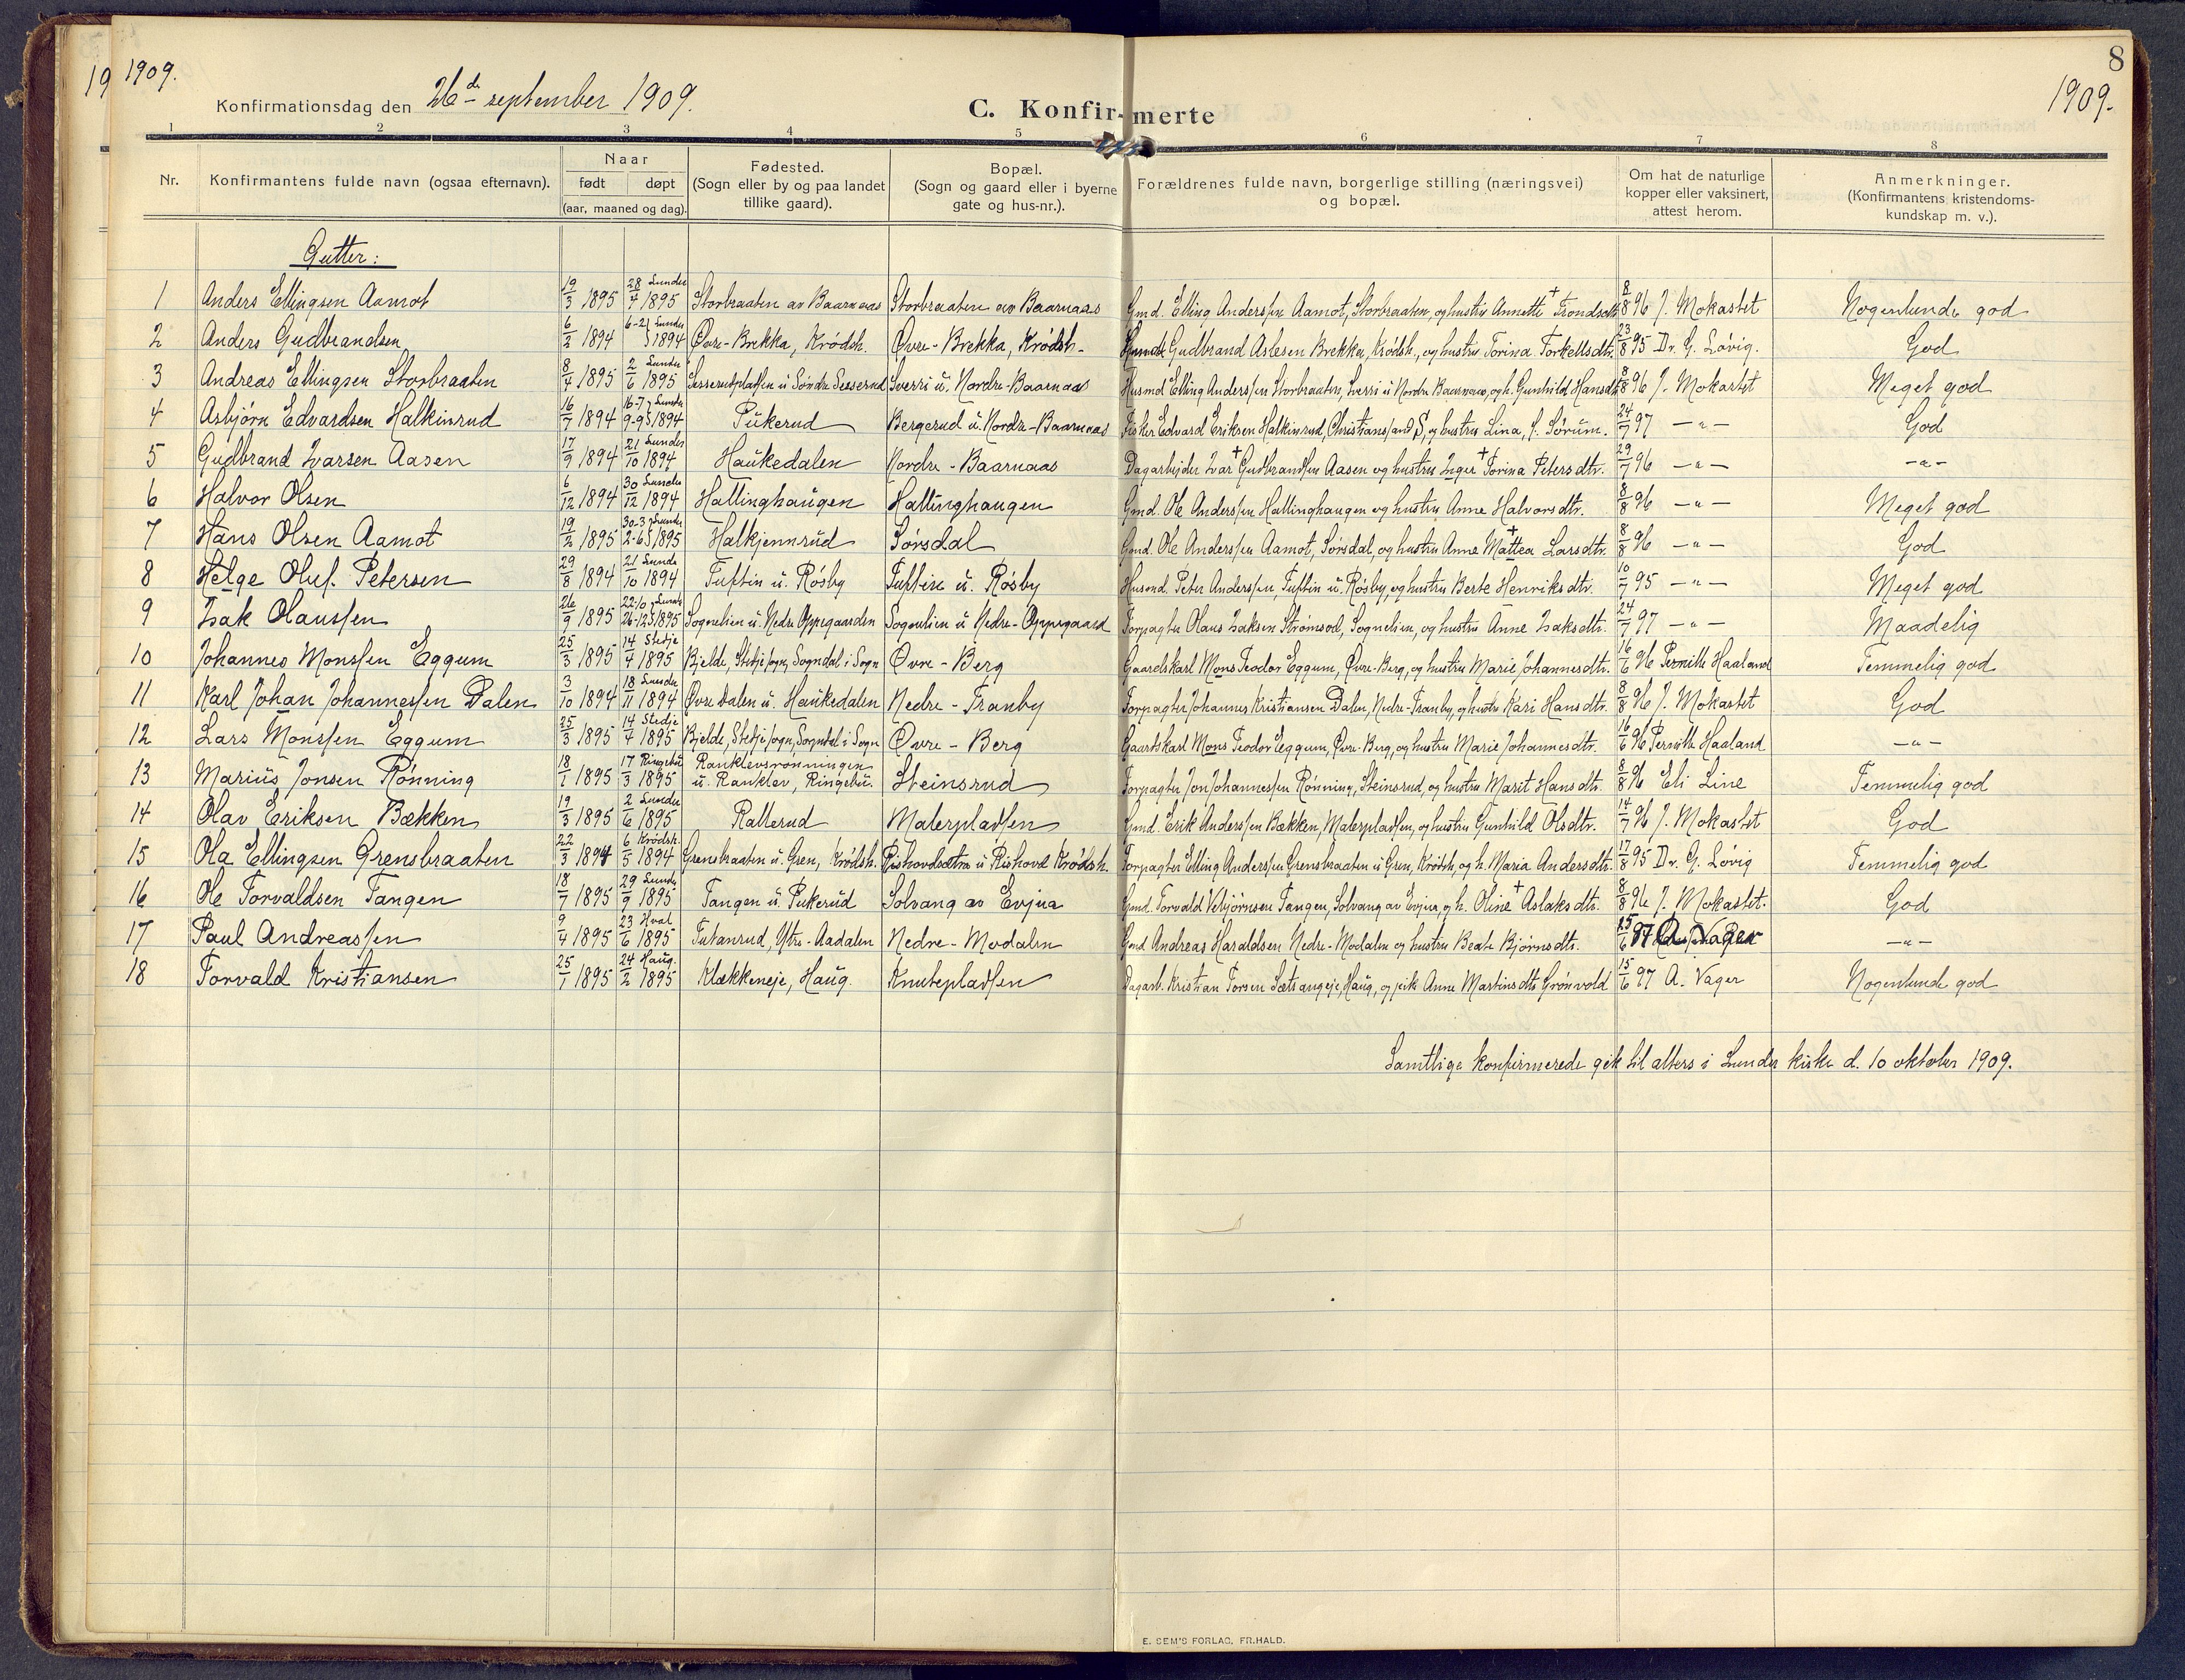 19 1909.
8
1909.
Konfirmationsdag den 26de september 1909.
C. Konfirmerte
1 2 3 4 5 6 7 8
Nr. Konfirmantens fulde navn (ogsaa efternavn). Naar født døpt (aar, maaned og dag). Fødested. (Sogn eller by og paa landet tillike gaard). Bopæl. (Sogn og gaard eller i byerne gate og hus-nr.). Forældrenes fulde navn, borgerlige stilling (næringsvei) og bopæl. Om hat de naturlige kopper eller vaksinert, attest herom. Anmerkninger. (Konfirmantens kristendomskundskap m. v.).
Gutter:
1 Anders Ellingsen Aamot 19/3 1895 28/4 Lunder 1895 Storbraaten av Baarnaas Storbraaten av Baarnaas Gmd. Elling Anderssen Aamot, Storbraaten, og hustru Annette † Trondsdtr. 8/8 96 J. Mokastet Nogenlunde god
2 Anders Gudbrandsen 6/2 1894 6-2 Lunder 1894 Øvre-Brekka, Krødsh. Øvre-Brekka, Krødsh. Gudbrand Aslesen Brekka, Krødsh., og hustru Torina Torkellsdtr. 23/8 95 Dr. G. Løvig. God
3 Andreas Ellingsen Storbraaten 8/4 1895 2/6 Lunder 1895 Sesserudpladsen u. Søndre Sesserud Sverri u. Nordre-Baarnaas Husmd Elling Anderssen Storbraaten, Sverri u Nordre Baarnaas, og h. Gunhild Hansdtr. 8/8 96 J. Mokastet Meget god
4 Asbjørn Edvardsen Halkinrud 16/7 1894 16-7 9-9 Lunder 1894 Pukerud Bergerud u. Nordre-Baarnaas Fisker Edvard Eriksen Halkinrud, Christianssand S, og hustru Lina, f. Sørum. 24/7 97 —"— God
5 Gudbrand Ivarsen Aasen 17/9 1894 21/10 Lunder 1894 Haukedalen Nordre-Baarnaas Dagarbejder Ivar † Gudbrandsen Aasen og hustru Inger † Torina Petersdtr. 29/7 96 —"— —"—
6 Halvor Olsen 6/12 1894 30/12 Lunder 1894 Hallinghaugen Hallinghaugen Gmd. Ole Anderssen Hallinghaugen og hustru Anne Halvorsdtr. 8/8 96 —"— Meget god
7 Hans Olsen Aamot 19/2 1895 30-3 2-6 Lunder 1895 Halkjennrud Sørsdal Gmd. Ole Anderssen Aamot, Sørsdal, og hustru Anne Mattea † Larsdtr. 8/8 96 —"— God
8 Helge Oluf. Petersen 29/8 1894 21/10 Lunder 1894 Tuftin u. Røsby Tuftin u. Røsby Husmd. Peter Anderssen, Tuftin u. Røsby, og hustru Berte Henriksdtr. 10/7 95 —"— Meget god
9 Isak Olaussen 26/9 1895 22/10 26-12 Lunder 1895 Sognelien u. Nedre Oppegaarden Sognelien u Nedre-Oppegaard Forpagter Olaus Isaksen Strømsod, Sognelien, og hustru Anne Isaksdtr. 24/7 97 —"— Maadelig
10 Johannes Monssen Eggum 25/3 1895 14/4 Stedje 1895 Bjelde, Stedje sogn, Sogndal i Sogn Øvre-Berg Gaardskarl Mons Teodor Eggum, Øvre-Berg, og hustru Marie Johannesdtr. 16/6 96 Pernille Haaland Temmelig god
11 Karl Johan Johannessen Dalen 3/10 1894 18/11 Lunder 1894 Øvre Dalen u. Haukedalen Nedre-Tranby Forpagter Johannes Kristiansen Dalen, Nedre-Tranby, og hustru Kari Hansdtr. 8/8 96 J. Mokastet God
12 Lars Monssen Eggum 25/3 1895 14/4 Stedje 1895 Bjelde, Stedje sogn, Sogndal i Sogn Øvre-Berg Gaardskarl Mons Teodor Eggum, Øvre-Berg, og hustru Marie Johannesdtr. 16/6 96 Pernille Haaland —"—
13 Marius Jonsen Rønning 18/1 1895 17/3 Ringebu 1895 Ranklevsrønningen u. Ranklev, Ringebu. Steinsrud Forpagter Jon Johannessen Rønning, Steinsrud, og hustru Marit Hansdtr. 8/8 96 Eli Line Temmelig god
14 Olav Eriksen Bækken 19/3 1895 2/6 Lunder 1895 Rallerud Malerpladsen Gmd. Erik Anderssen Bækken, Malerpladsen, og hustru Gunhild Olsdtr. 14/7 96 J. Mokastet God
15 Ola Ellingsen Grensbraaten 22/3 1894 6/5 Krødsh. 1894 Grensbraaten u. Gren, Krødsh. Rishovdsætra u Rishovd Krødsh. Forpagter Elling Anderssen Grensbraaten u Gren, Krødsh, og h. Maria Andersdtr. 17/8 95 Dr. G. Løvig Temmelig god
16 Ole Torvaldsen Tangen 18/7 1895 29/9 Lunder 1895 Tangen u. Pukerud Solvang av Evjua Gmd. Torvald Vebjørnsen Tangen, Solvang av Evjua, og h. Oline † Aslaksdtr. 8/8 96 J. Mokastet. God
17 Paul Andreassen 9/4 1895 23/6 Hval 1895 Tutanrud, Ytre-Aadalen Nedre-Modalen Gmd. Andreas Haraldsen Nedre-Modalen og hustru Beate Bjørnsdtr. 97 —"—
18 Torvald Kristiansen 25/1 1895 24/2 Haug. 1895 Klækkeneje, Haug. Knutepladsen Dagarb. Kristian Torsen Sætrangeje, Haug, og pike Anne Martinsdtr Grønvold 15/6 97 A. Vager Nogenlunde god
Samtlige konfirmerede gik til alters i Lunder kirke d. 10 oktober 1909.
E. SEM'S FORLAG, FR.HALD.